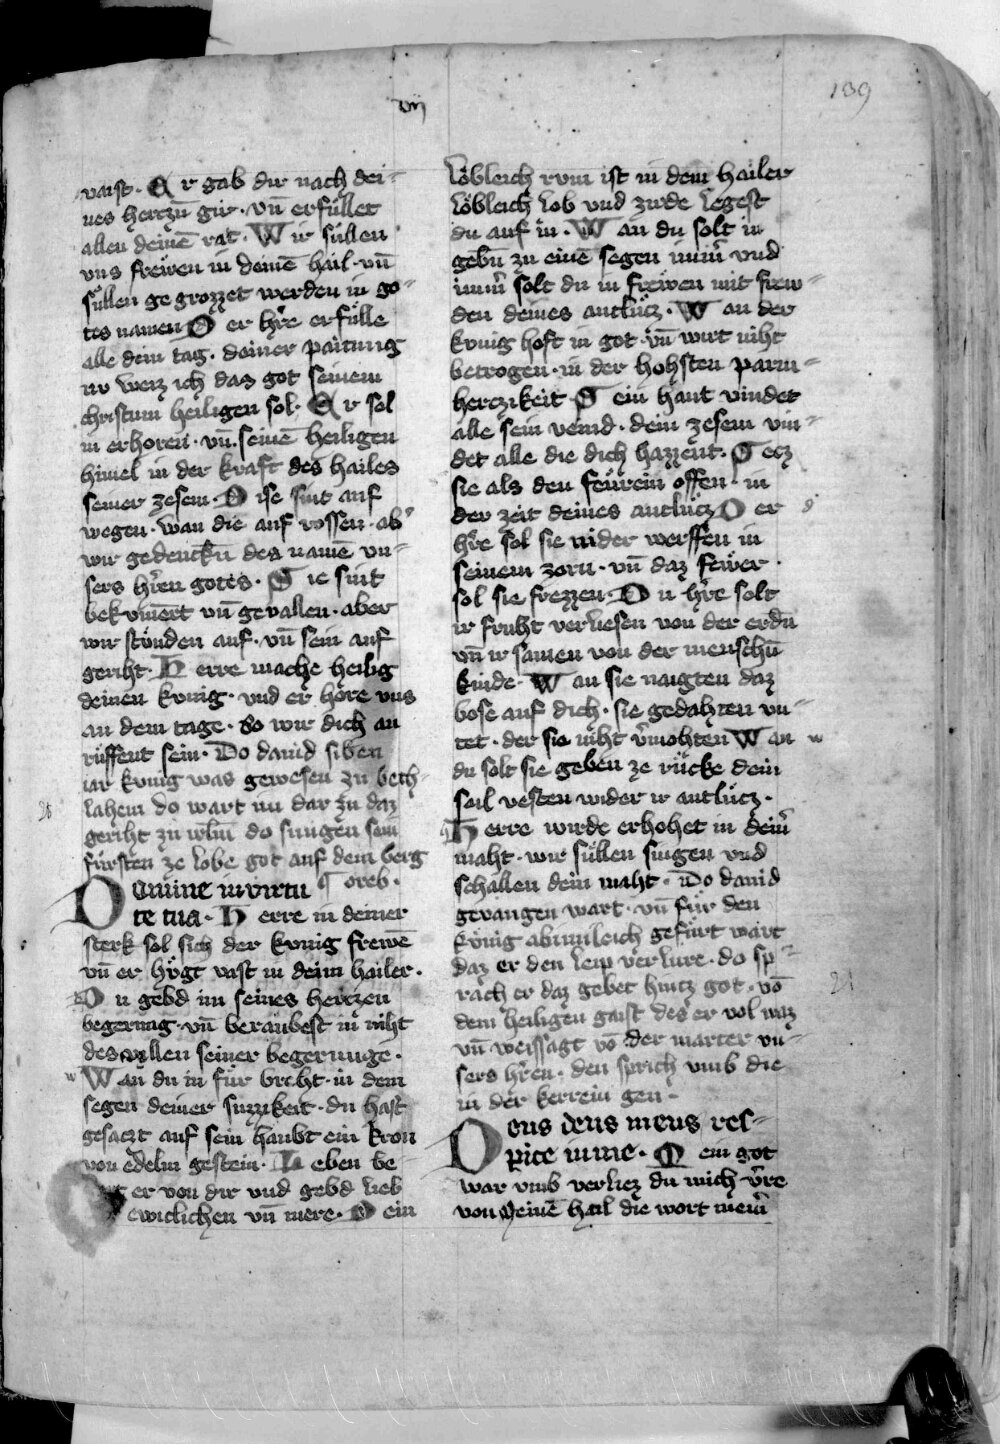 vij
139
vaist · Er gab dir nach dei-
nes hertzn̄ gir · vn̄ erfüllet
allen deinē rat · Wir süllen
vns frewen in deinē hail · vn̄
süllen gegrozzet werden in go-
tes namen Der hr̄e erfülle
alle dein tag · deiner paitung
nu weiz ich daz got seinem
christum heiligen sol · Er sol
in erhoren · vn̄ · seinē heiligen
himel in der kraft des hailes
seiner zesem · Dise sint auf
wegen · wan die auf rossen · ab̾
wir gedenckn̄ des namē vn-
sers hr̄en gotes · Sie sint
bekvm̄ert vn̄ gevallen · aber
wir stünden auf · vn̄ sein auf
geriht · Herre mache heilig
deinen kvnig · vnd erhöre vns
an dem tage · so wir dich an
rüffent sein · Do dauid siben
iar kvnig was gewesen zu beth-
lahem do wart nu dar zu daz
geriht zu irl̄m do sungen sein
fürsten ze lobe got auf dem berg
Domine in virtu ¶ oreb ·
te tua · Herre in deiner
sterk sol sich der kvnig frewē
vn̄ er högt vast in deim hailer ·
Du gebd im seines hertzen
begerung · vn̄ beraubest in niht
des willen seiner begerunge ·
w Wan du in für breht · in dem
segen deiner suzzikeit · du hast
gesaczt auf sein haubt ein kron
von edelm gestein · Leben be-
er von dir vnd gebd lieb
ewiclichen vn̄ mere · Dein
löbleich rvm ist in dem hailer
löbleich lob vnd zirde legest
du auf in · Wan du solt in
gebn̄ zu einē segen im̄ vnd
im̄ solt du in frewen mit frew-
den deines antlücz · Wan der
kvnig hoft in got · vn̄ wirt niht
betrogen · in der hohsten parm-
herczikeit Sein hant vindet
alle sein veind · dein zesem vin-
det alle die dich hazzent · Secz
sie als den feurein offen · in
der zeit deines antlücz Der d
hr̄e sol sie nider werffen in
seinem zorn · vn̄ daz fewer ·
sol sie frezzen · Du hr̄e solt
ir fruht verliesen von der erdn̄
vn̄ ir samen von der menschn̄
kinde · Wan sie naigten daz
bose auf dich · sie gedahten vn-
tet · der sie niht v̄mohten Wan w
du solt sie geben ze rücke dein
sail vesten wider ir antlücz ·
Herre wirde erhohet in dein̄
maht · wir süllen singen vnd
schallen dein maht · Do dauid
gevangen wart · vn̄ für den
kvnig abimileich gefürt wart
daz er den leip verlure · do sp-
rach er daz gebet hincz got · vō
dem heiligen gaist des er vol waz
vn̄ weissagt vō der marter vn-
sers hr̄en · den sprich vmb die
in der kerrein gen ·
Deus deus meus res-
pice in me · Mein got
war vmb verliez du mich v̄re
von meinē hail die wort mein̄